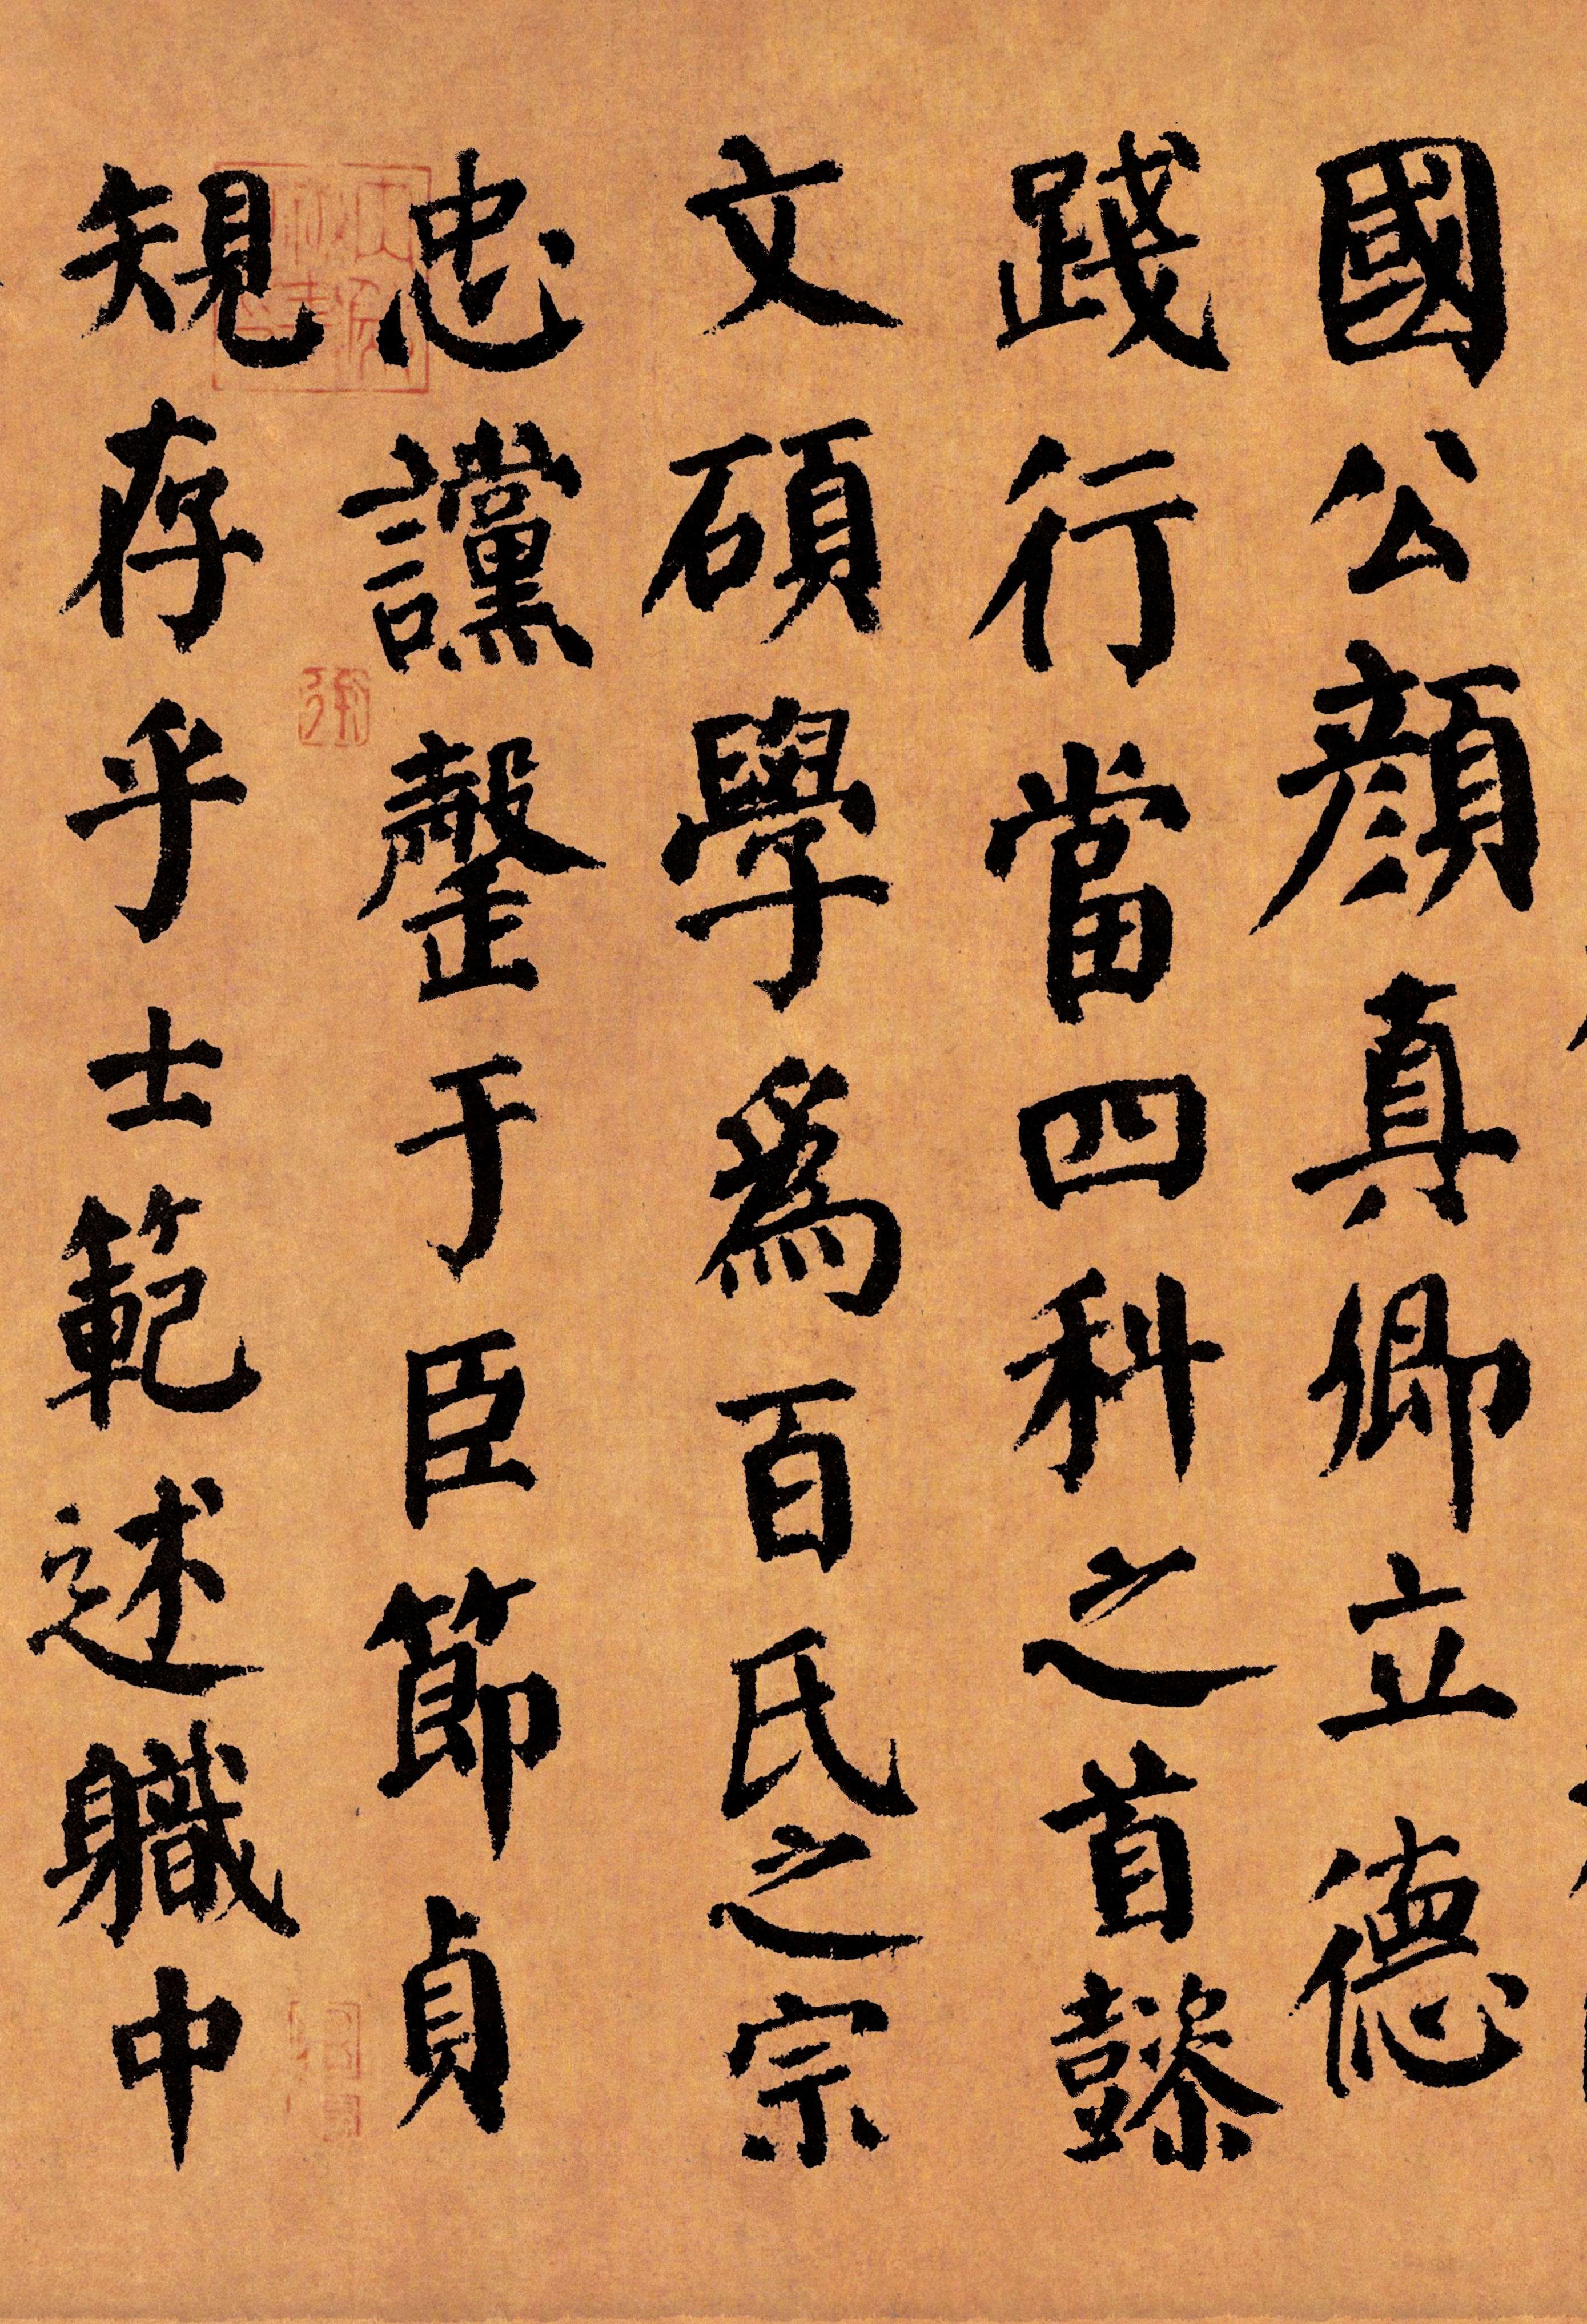 國公顏真卿立德
踐行當四科之首懿
文碩學爲百氏之宗
忠讜罄于臣節貞
規存乎士範述軄中